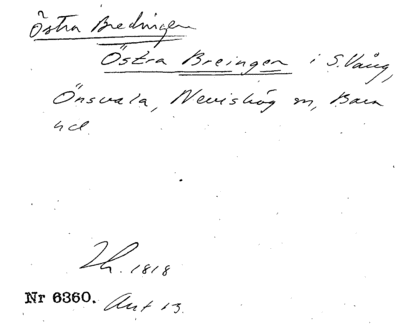 Östra Bredingen
Östra Breingen i S. Vång,
Önsvala, Nevishög sn, Bara
hd
Lh. 1818
Nr 6360. Avt 13.